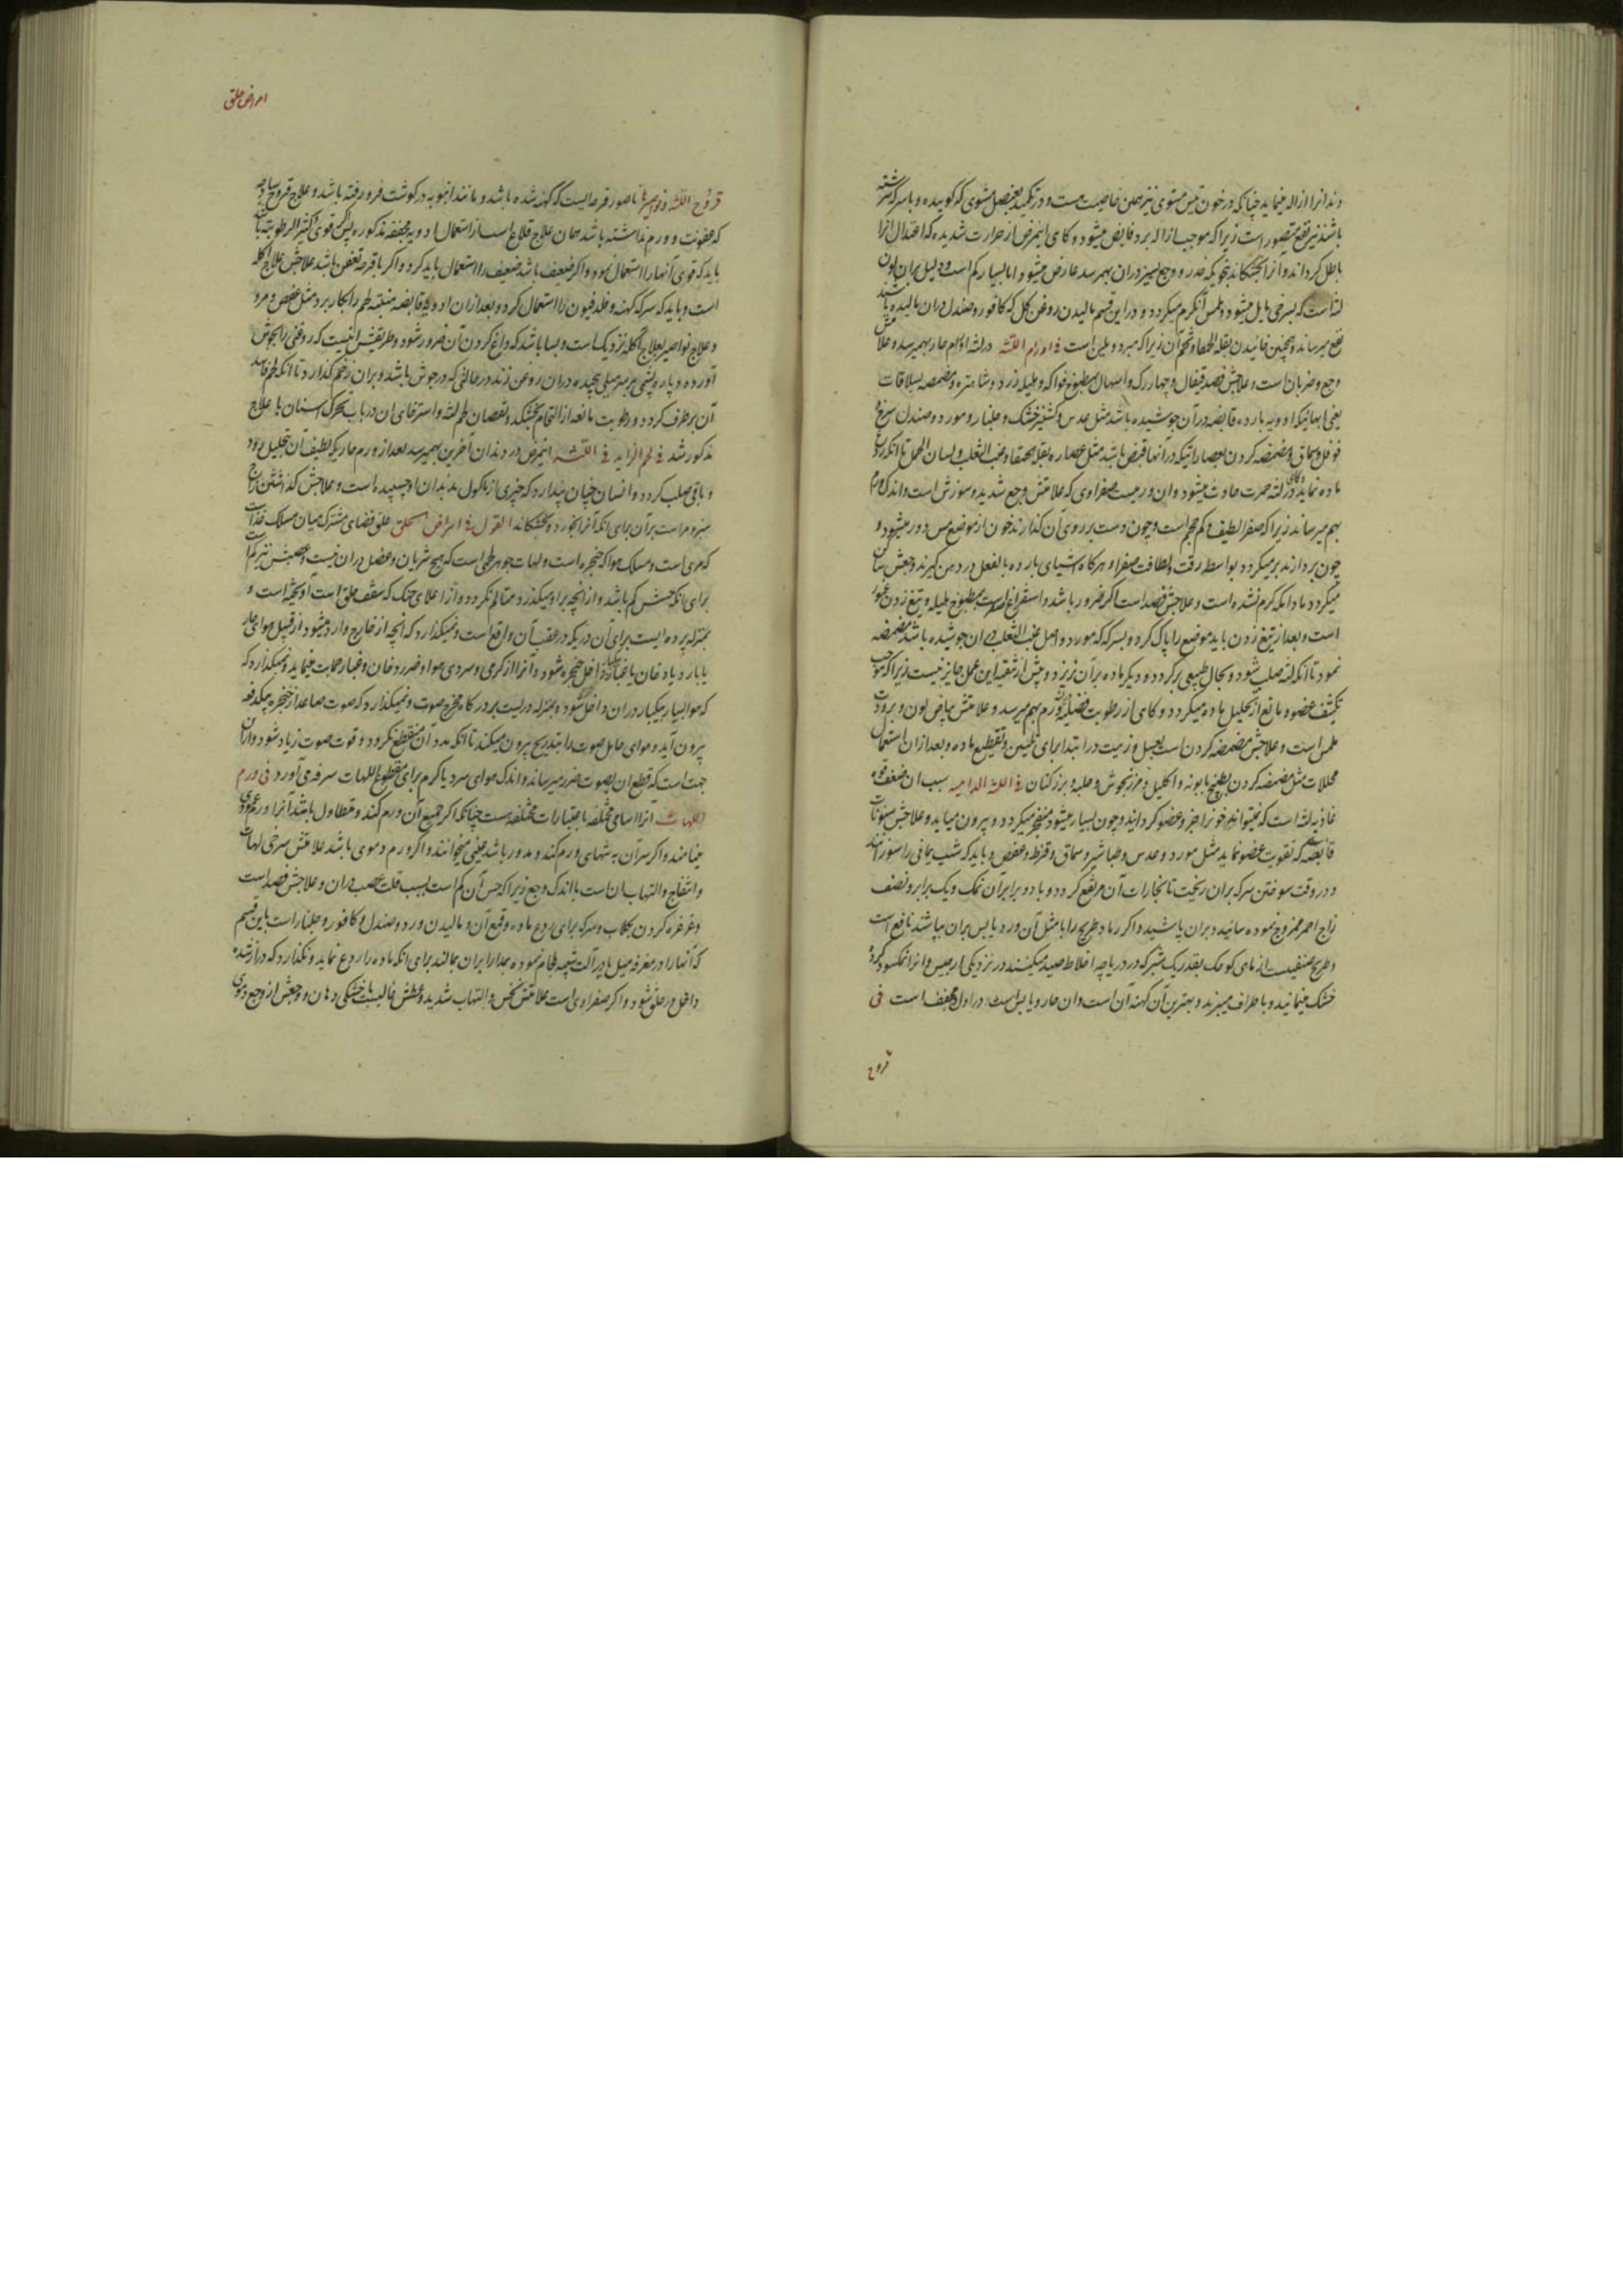 دندانرا ازاله مینماید چنانکه در خون تیس مشوی نیز همین خاصیت هست و در تکمید ببصل مشوی که کوبیده و با سرکه سرشته
باشند نیز نفع متصور است زیرا که موجب ازاله برد قابض میشود و کاهی اینمرض از حرارت شدیده که اعتدال انرا
باطل کرداند و آنرا بخشکاند بنحویکه خدر و وجع نیز در ان بهمرسد عارض میشود اما بسیار کم است و دلیل بر ان لون
لثه است که بسرخی مایل میشود و لمس آن گرم میکردد و در این قسم مالیدن روغن گل که کافور و صندل در ان مالیده باشند
نفع میرساند و همچنین خائیدن بقلة الحمقا و تخم آن زیرا که مبرد و ملین است فی اورام اللثه در لثه اورام حار بهمیرسد و علامتش
وجع و ضربان است و علاجش فصد قیفال و چهار رک و اسهال بمطبوخ فواکه و هلیله زرد و شاهتره و مضمضه بسلاقات
یعنی ابهائیکه ادویه بارده قابضه در آن جوشیده باشد مثل عدس و کشنیز خشک و جلنار و مورد و صندل سرخ و
فوفل و سماق و مضمضه کردن بعصاراتیکه در آنها قبض باشد مثل عصاره بقلة الحمقا و عنب الثعلب و لسان الحمل تا انکه ردع
ماده نماید و کاهی در لثه حمرت حادث میشود و ان ورمیست صفراوی که علامتش وجع شدید و سوزش است و اندک ورم
بهم میرساند زیرا که صفرا لطیف و کم حجم است و چون دست بر روی آن کذارند خون از موضع مس دور میشود و
چون بردارند بر میکردد بواسطه رقت و لطافت صفرا و هرکاه اشیای بارده بالفعل در دهن کیرند وجعش ساکن
میکردد مادامکه کرم نشده است و علاجش فصد است اکر ضرور باشد و استفراغ صفرا است بمطبوخ هلیله و تیغ زدن عمور
است و بعد از تیغ زدن باید موضع را پاک کرد و بسرکه که مورد و اصل عنب الثعلب در ان جوشیده باشد مضمضه
نمود تا انکه لثه صلب شود و بحال طبیعی برکردد و دیکر ماده بر آن نریزد و پیش از تنقیه این عمل جایز نیست زیرا که موجب
تکثیف عضو و مانع از تحلیل ماده میکردد و کاهی از رطوبت فضلیه ورم بهم میرسد و علامتش بیاض لون و برودت
لمس است و علاجش مضمضه کردن است بعسل و زیت در ابتدا برای تلیین و تقطیع ماده و بعد از ان استعمال
محللات مثل مضمضه کردن بطبیخ بابونه و اکلیل و مرزنجوش و حلبه و بزر کتان فی اللثة الدامیه سبب ان ضعف قوة
غاذیه لثه است که نمیتواند خونرا جزو عضو کرداند و چون بسیار میشود منفجر میکردد و بیرون میاید و علاجش سنونات
قابضه که تقویت عضو نماید مثل مورد و عدس و طباشیر و سماق و قرظ و عفص و باید که شب یمانی را سوزانند
و در وقت سوختن سرکه بر ان ریخت تا بخارات آن مرتفع کردد و با دو برابر آن نمک و یک برابر و نصف
زاج احمر ممزوج نموده سائید و بر ان پاشید و اکر رماد طریخ را با مثل آن ورد یابس بر ان بپاشند نافع است
و طریخ صنفیست از ماهی کوچک بقدر یک شبر که در دریاچه اخلاط صید میکنند در نزدیکی ارجیس و انرا نمکسود کرده
خشک مینمایند و باطراف میبرند و بهترین آن کهنه آن است و ان حار و یابس است در اول و مجفف است فی
قروح
امراض حلق
قروح اللثه و نواصیرها ناصور قرحه ایست که کهنه شده باشد و مانند انبوبه در کوشت فرو رفته باشد و علاج قروح ساذجه
که عفونت و ورم نداشته باشد همان علاج قلاع است از استعمال ادویه مجففه مذکوره پس اکر قوی و کثیر الرطوبت باشد
باید که قوی آنها را استعمال نمود و اکر ضعیف باشد ضعیف را استعمال باید کرد و اکر با قرحه تعفن باشد علاجش علاج اکله
است و باید که سرکه کهنه و قلدفیون را استعمال کرد و بعد از ان ادویه قابضه منبته لحم را بکار برد مثل عفص و مرو
و علاج نواصیر بعلاج اکله نزدیک است و بسا باشد که داغ کردن آن ضرور شود و طریقش اینست که روغنی را بجوش
آورده و پاره پشمی بر سر میلی پیچیده در ان روغن زنند در حالتی که در جوش باشد و بر ان زخم کذارد تا انکه لحم فاسد
آن برطرف کردد و رطوبت مانعه از التحام بخشکد و نقصان لحم لثه و استرخای ان در باب تحرک اسنان با علاج
مذکور شد فی لحم الزاید فی اللثه اینمرض در دندان آخرین بهمیرسد بعد از ورم حار یکه لطیف آن بتحلیل رود
و باقی صلب کردد و انسان چنان پندارد که چیزی از مأکول بدندان او چسپیده است و علاجش کذاشتن زاج
سبز و مر است بر آن برای انکه آنرا بخورد و بخشکاند القول فی امراض الحلق حلق فضای مشترکه میان مسلک غذاست
که مری است و مسلک هوا که حنجره است و لهات جوهر لحمی است که هیچ شریان و عضل در ان نیست و عصبش نیز کم است
برای انکه حسش کم باشد و از انچه بر او میکذرد متألم نکردد و از اعلای حنک که سقف حلق است آویخته است و
بمنزله پرده ایست برای آن دریکه در عقب آن واقع است و نمیکذارد که انچه از خارج وارد میشود از قبیل هوای حار
یا بارد یا دخان یا غبار داخل حنجره شود و انرا از کرمی و سردی هوا و ضرر دخان و غبار حمایت مینماید و نمیکذارد که
که هوا بسیار بیکبار در ان داخل شود و بمنزله دریست بر درکاه مخرج صوت و نمیکذارد که صوت صاعد از حنجره بیکدفعه
بیرون آید و هوای حامل صوت را بتدریج بیرون میکند تا انکه مدد آن منقطع نکردد و قوت صوت زیاد شود و از ان
جهت است که قطع ان بصوت ضرر میرساند و اندک هوای سرد یا کرم برای مقطوع اللهات سرفه می آورد فی ورم
اللهات آنرا اسامی مختلفه باعتبارات مختلفه هست چنانکه اکر جمیع آن ورم کند و متطاول باشد آنرا ورم عمودی
مینامند و اکر سر آن به تنهای ورم کند و مدور باشد عنبی میخوانند و اکر ورم دموی باشد علامتش سرخی لهات
و انتفاخ و التهاب ان است با اندک وجع زیرا که حس آن کم است بسبب قلت عصب در ان و علاجش فصد است
و غرغره کردن بکلاب و سرکه برای ردع ماده و قمع آن و مالیدن ورد و صندل و کافور و جلنار است باین قسم
که آنها را در مغرفه میل یا در آلت شبیه بلجام نموده بمدارا بر ان بمالند برای انکه ماده را ردع نماید و نکذارد که دراز شده
داخل در حلق شود و اکر صفراوی است علامتش نخس و التهاب شدید و عطش غالب با خشکی دهان و وجعش از وجع دموی